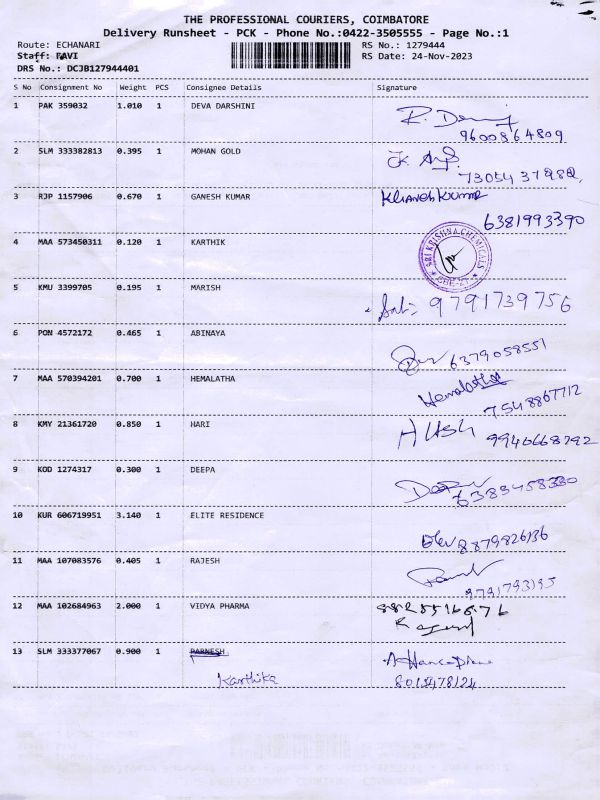 THE PROFESSIONAL COURIERS, COIMBATORE
Delivery Runsheet - PCK - Phone No.:0422-3505555 - Page No.:1
Route: ECHANARI RS No.: 1279444
Staff: RAVI RS Date: 24-Nov-2023
DRS No.: DCJB127944401
S No Consignment No Weight PCS Consignee Details Signature
1 PAK 359032 1.010 1 DEVA DARSHINI
9600864809
2 SLM 333382813 0.395 1 MOHAN GOLD
3 RJP 1157906 0.670 1 GANESH KUMAR
6381993390
SRI KRISHNA CHEMICALS
CBE-21
4 MAA 573450311 0.120 1 KARTHIK
5 KMU 3399705 0.195 1 MARISH
9791739756
6 PON 4572172 0.465 1 ABINAYA
6379058551
7 MAA 570394201 0.700 1 HEMALATHA
Hemalatha
7548867712
8 KMY 21361720 0.850 1 HARI
9940668792
9 KOD 1274317 0.300 1 DEEPA
6383458330
10 KUR 606719951 3.140 1 ELITE RESIDENCE
8879826136
11 MAA 107083576 0.405 1 RAJESH
9791793195
12 MAA 102684963 2.000 1 VIDYA PHARMA
13 SLM 333377067 0.900 1 PARNESH
Karthika
8015478124